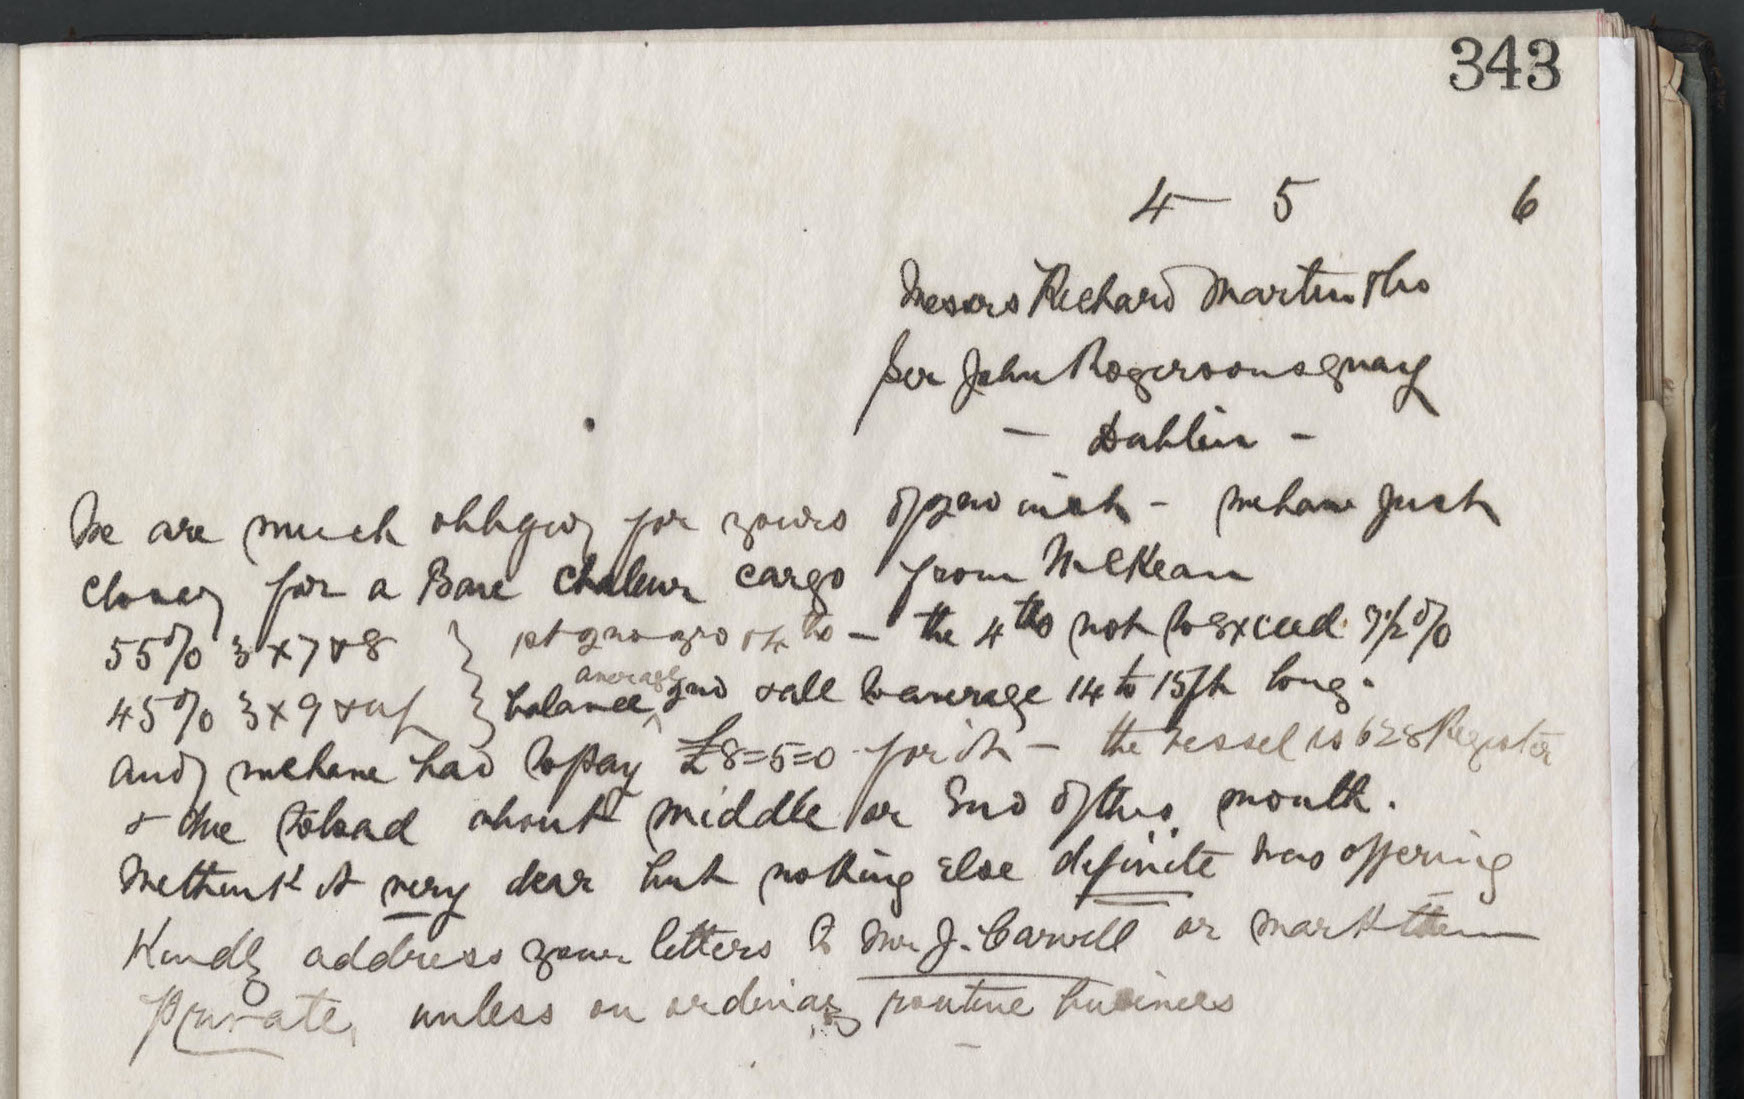 343
4 - 5 6
Messrs Richard Martin & Co
Sir John Rogersons quay
- Dublin -
We are much obliged for yours of 2nd inst - we have just
closed for a Baie Chaleur cargo from McKean
55% 3 x 7 & 8 } 1st 2nd 3rd & 4ths - the 4ths not to exceed 7½%
45% 3 x 9 & up } balance average 2nd & all to average 14 to 15ft long.
and we have had to pay £8=5=0 for it - the vessel is 628 Register
& due to load about middle or End of this month.
We think it very dear but nothing else definite was offering
Kindly address your letters to Mr J. Carvill or mark them
Private, unless on ordinary routine business